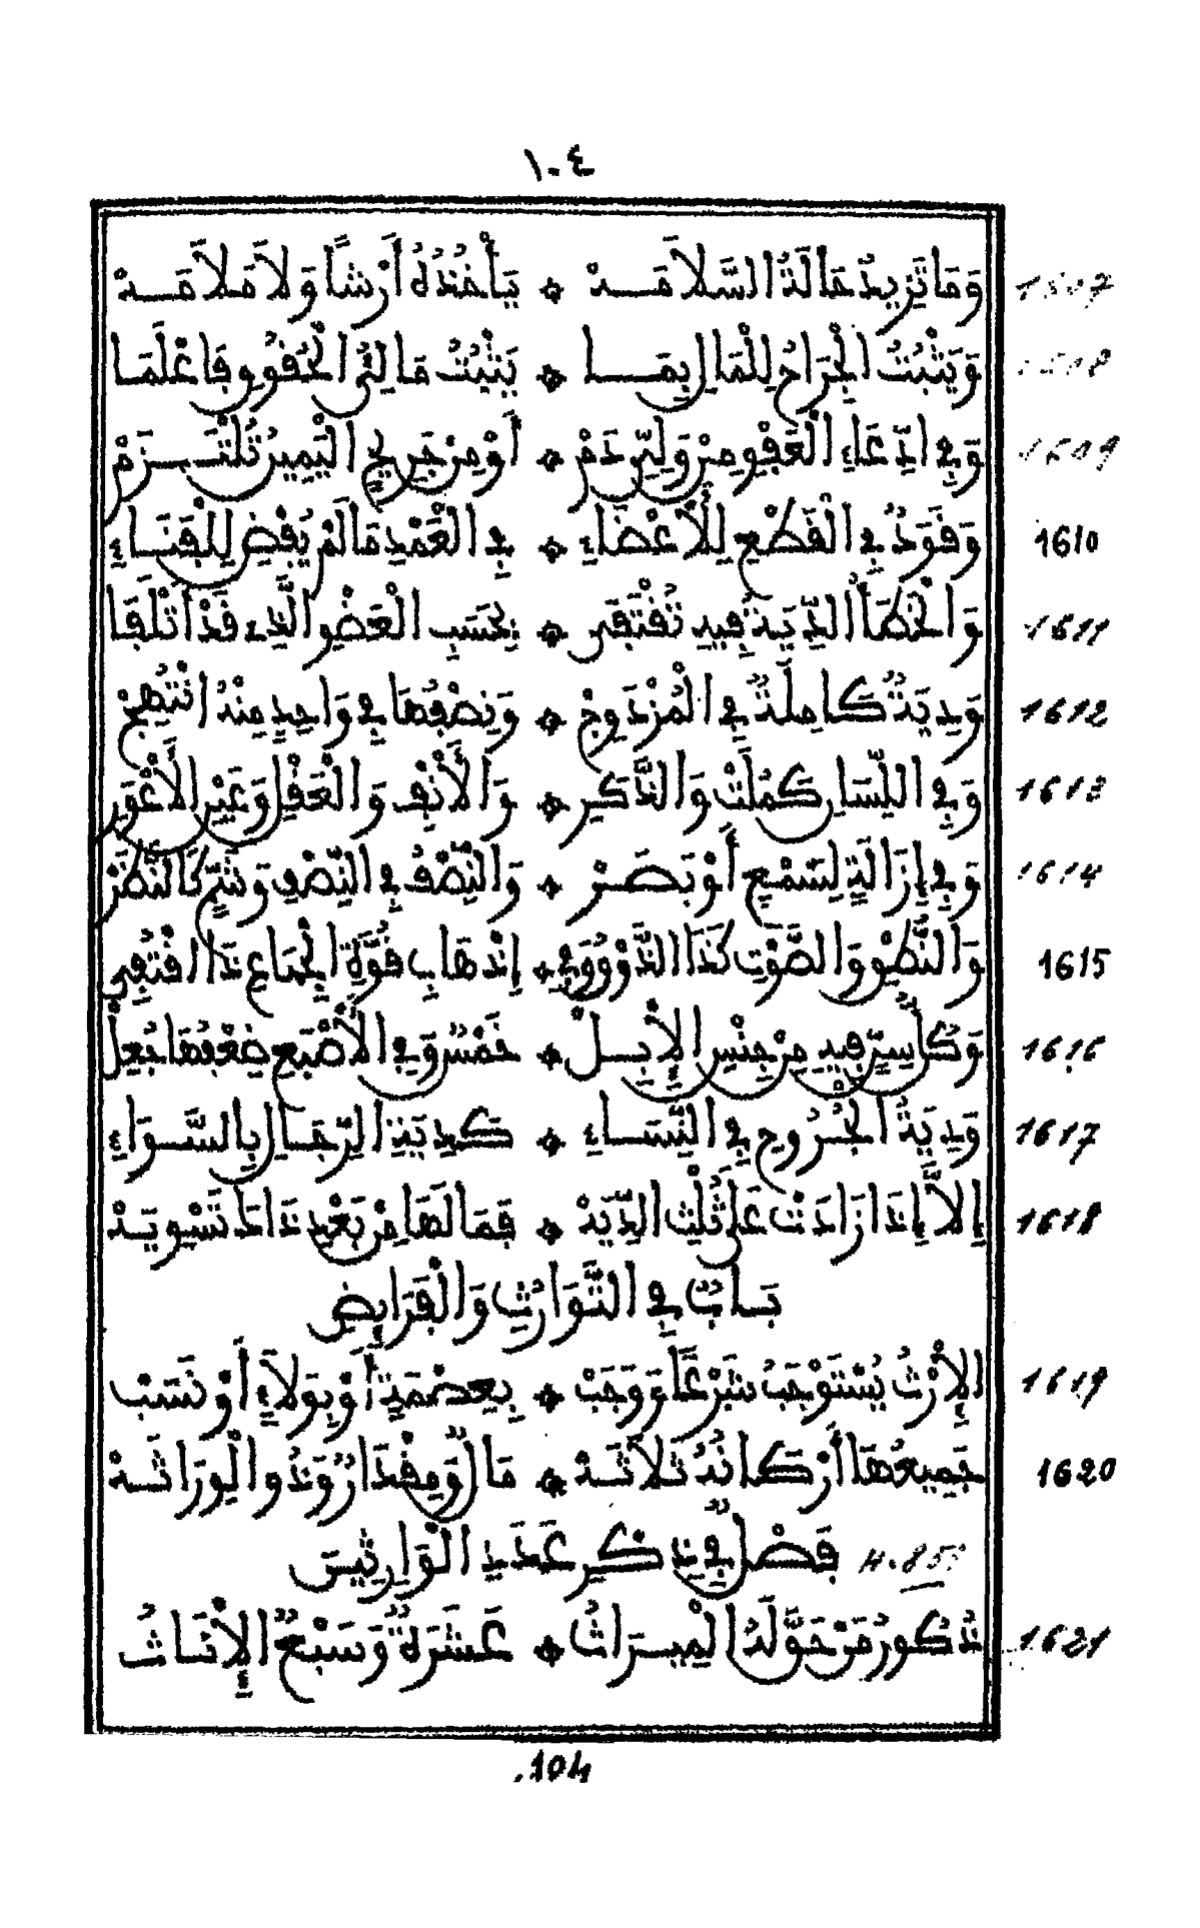 ١٠٤
وَمَا تَزِيدُ حَالَةُ السَّلاَمَهْ ۞ يَأْخُذُهُ أَرْشًا وَلاَ مَلاَمَهْ 1607
وَيَثْبُتُ الْجِرَاحُ لِلْمَالِ بِمَا ۞ يَثْبُتُ مَالِيُّ الْحُقُوقِ فَاعْلَمَا 1608
وَفِي ادِّعَاءِ الْعَفْوِ مِنْ وَلِيِّ دَمْ ۞ أَوْ مِنْ جَرِيحٍ الْيَمِينُ تُلْتَزَمْ 1609
وَقَوَدٌ فِي الْقَطْعِ لِلْأَعْضَاءِ ۞ فِي الْعَمْدِ مَا لَمْ يُفْضِ لِلْفَنَاءِ 1610
وَالْخَطَأُ الدِّيَةُ فِيهِ تُقْتَفَى ۞ بِحَسَبِ الْعُضْوِ الَّذِي قَدْ أُتْلِفَا 1611
وَدِيَةٌ كَامِلَةٌ فِي الْمُزْدَوِجْ ۞ وَنِصْفُهَا فِي وَاحِدٍ مِنْهُ انْتُهِجْ 1612
وَفِي اللِّسَانِ كَمُلَتْ وَالذَّكَرِ ۞ وَالْأَنْفِ وَالْعَقْلِ وَعَيْنِ الْأَعْوَرِ 1613
وَفِي إِزَالَةٍ لِسَمْعٍ أَوْ بَصَرْ ۞ وَالنِّصْفُ فِي النِّصْفِ وَشَمٍّ كَالنَّظَرْ 1614
وَالنُّطْقِ وَالصَّوْتِ كَذَا الذَّوْقُ وَفِي ۞ إِذْهَابِ قُوَّةِ الْجِمَاعِ ذَا اقْتُفِي 1615
وَكُلُّ سِنٍّ فِيهِ مِنْ جِنْسِ الْإِبِلْ ۞ خَمْسٌ وَفِي الْأُصْبُعِ ضِعْفُهَا جُعِلْ 1616
وَدِيَةُ الْجُرُوحِ فِي النِّسَاءِ ۞ كَدِيَةِ الرِّجَالِ بِالسَّوَاءِ 1617
إِلاَّ إِذَا زَادَتْ عَلَى ثُلْثِ الدِّيَهْ ۞ فَمَا لَهَا مِنْ بَعْدِ ذَا تَسْوِيَهْ 1618
بَابٌ فِي التَّوَارُثِ وَالْفَرَائِضِ
الْإِرْثُ يُسْتَوْجَبُ شَرْعًا وَوَجَبْ ۞ بِعِصْمَةٍ أَوْ بِوَلاَءٍ أَوْ نَسَبْ 1619
جَمِيعُهَا أَرْكَانُهُ ثَلاَثَهْ ۞ مَالٌ وَمِقْدَارٌ وَذُو الْوِرَاثَهْ 1620
فَصْلٌ فِي ذِكْرِ عَدَدِ الْوَارِثِينَ
ذُكُورُ مَنْ حَقَّ لَهُ الْمِيرَاثُ ۞ عَشَرَةٌ وَسَبْعٌ الْإِنَاثُ 1621
104